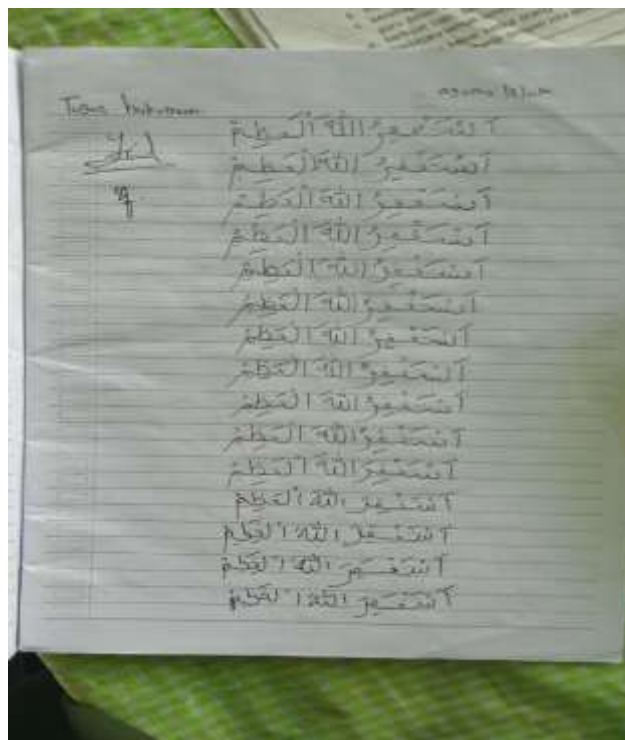 agama islam
Tugas hukuman
اَسْتَغْفِرُ اللّٰهَ الْعَظِمْ
اَسْتَغْفِرُ اللّٰهَ الْعَظِمْ
اَسْتَغْفِرُ اللّٰهَ الْعَظِمْ
اَسْتَغْفِرُ اللّٰهَ الْعَظِمْ
اَسْتَغْفِرُ اللّٰهَ الْعَظِمْ
اَسْتَغْفِرُ اللّٰهَ الْعَظِمْ
اَسْتَغْفِرُ اللّٰهَ الْعَظِمْ
اَسْتَغْفِرُ اللّٰهَ الْعَظِمْ
اَسْتَغْفِرُ اللّٰهَ الْعَظِمْ
اَسْتَغْفِرُ اللّٰهَ الْعَظِمْ
اَسْتَغْفِرُ اللّٰهَ الْعَظِمْ
اَسْتَغْفِرُ اللّٰهَ الْعَظِمْ
اَسْتَغْفِرُ اللّٰهَ الْعَظِمْ
اَسْتَغْفِرُ اللّٰهَ الْعَظِمْ
اَسْتَغْفِرُ اللّٰهَ الْعَظِمْ